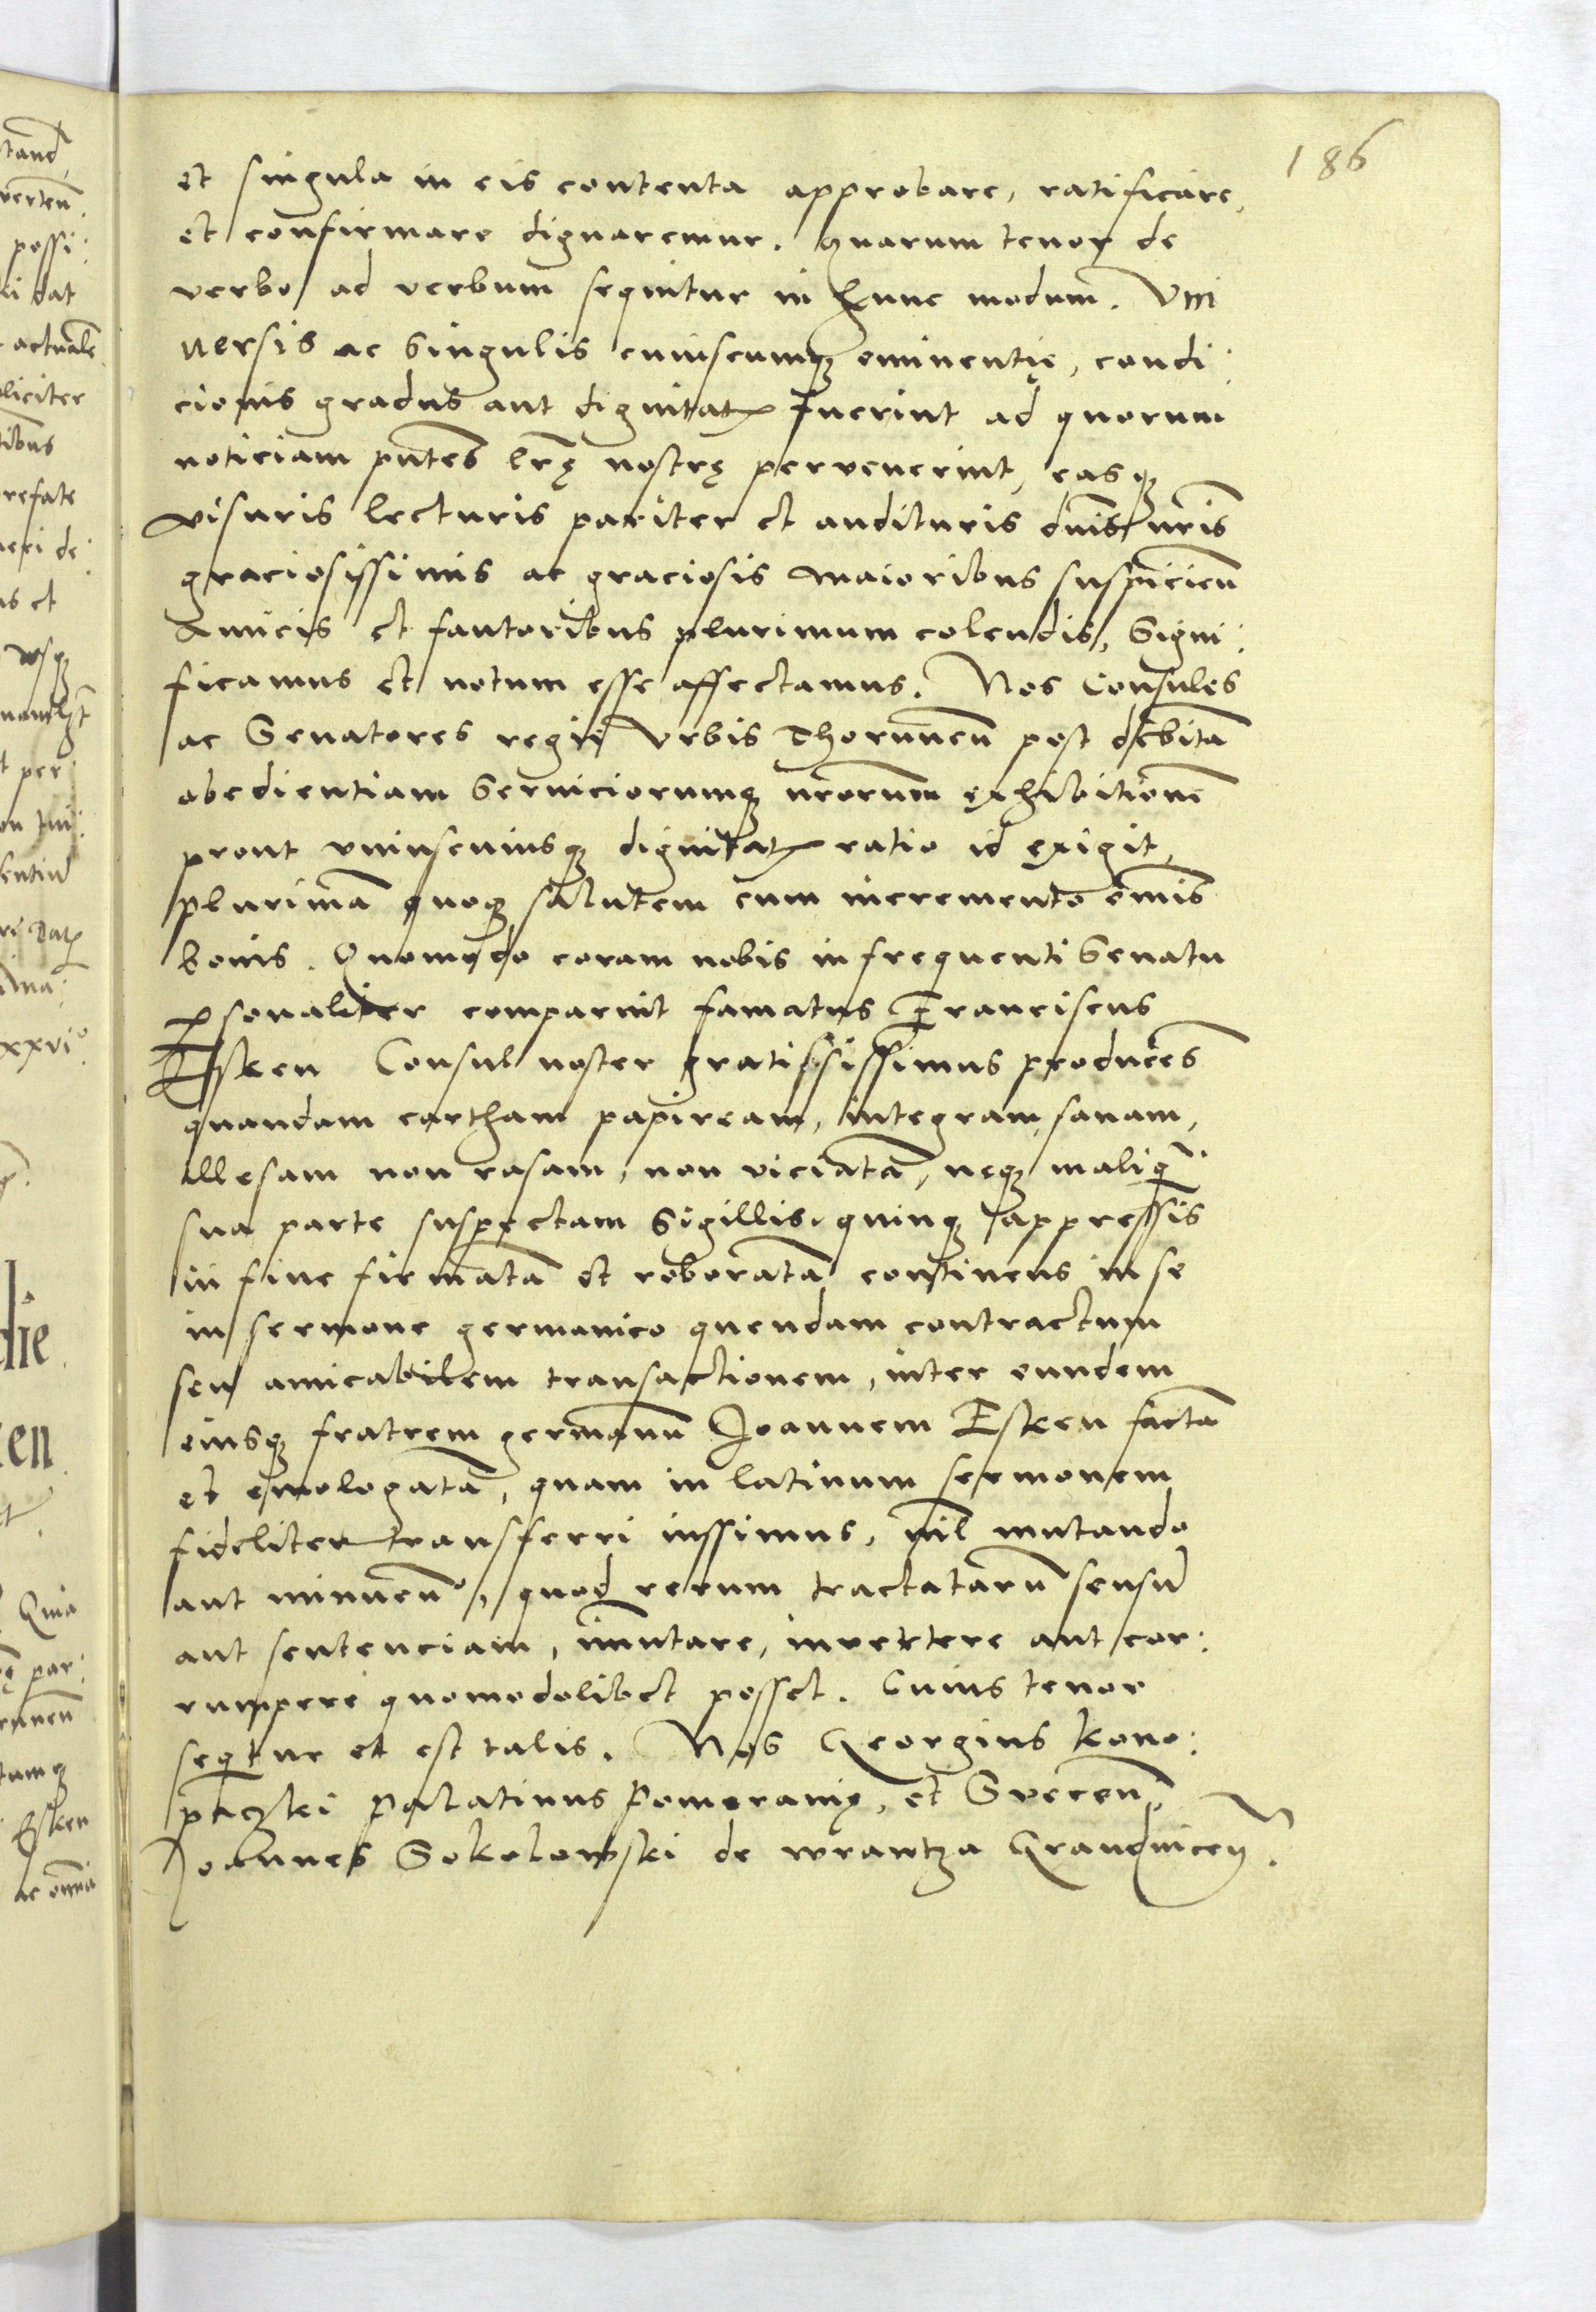 186
et singula in eis contenta approbare, ratificare,
et confirmare dignaremur. quarum tenor de
verbo ad verbum sequitur in hunc modum. Vni
uersis ac Singulis cuiuscumq eminentię, condi:
cionis gradus aut dignitat fuerint ad quorum
noticiam pntes lrę nostrę pervenerint, easq
visuris lecturis pariter et audituris dnis nris
graciosissimis ac graciosis maioribus suspicien
Amicis et fautoribus plurimum colendis, Signi:
ficamus et notum esse affectamus. Nos Consules
ac Senatores regii Vrbis Thorunen post debita
obedientiam Seruiciorumq nrorum exhibitione
prout vniuscuiusq dignitat ratio id exigit,
plurima quoq salutem cum incremento omnis
bonis. Quomodo coram nobis in frequenti Senatu
psonaliter comparuit famatus Franciscus
Esken Consul noster gratississimus produces
quandam cartham papiream, integram, sanam,
illesam non rasam, non viciata, neq in aliq
sua parte suspectam Sigillis quinq appressis
in fine firmata et roborata continens in se
in sermone germanico quendam contractum
seu amicabilem transactionem, inter eundem
eiusq fratrem germanu Joannem Esken facta
et emologata, quam in latinum sermonem
fideliter transferri iussimus, nil mutando
aut minuendo, quod rerum tractataru sensu
aut sentenciam, imutare, invertere aut cor:
rumpere quomodolibet posset. Cuius tenor
seqtur et est talis. Nos Georgius kono:
paczki Palatinus Pomeranię, et Svecen,
Joannes Sokolowski de wrantza Graudnicen.